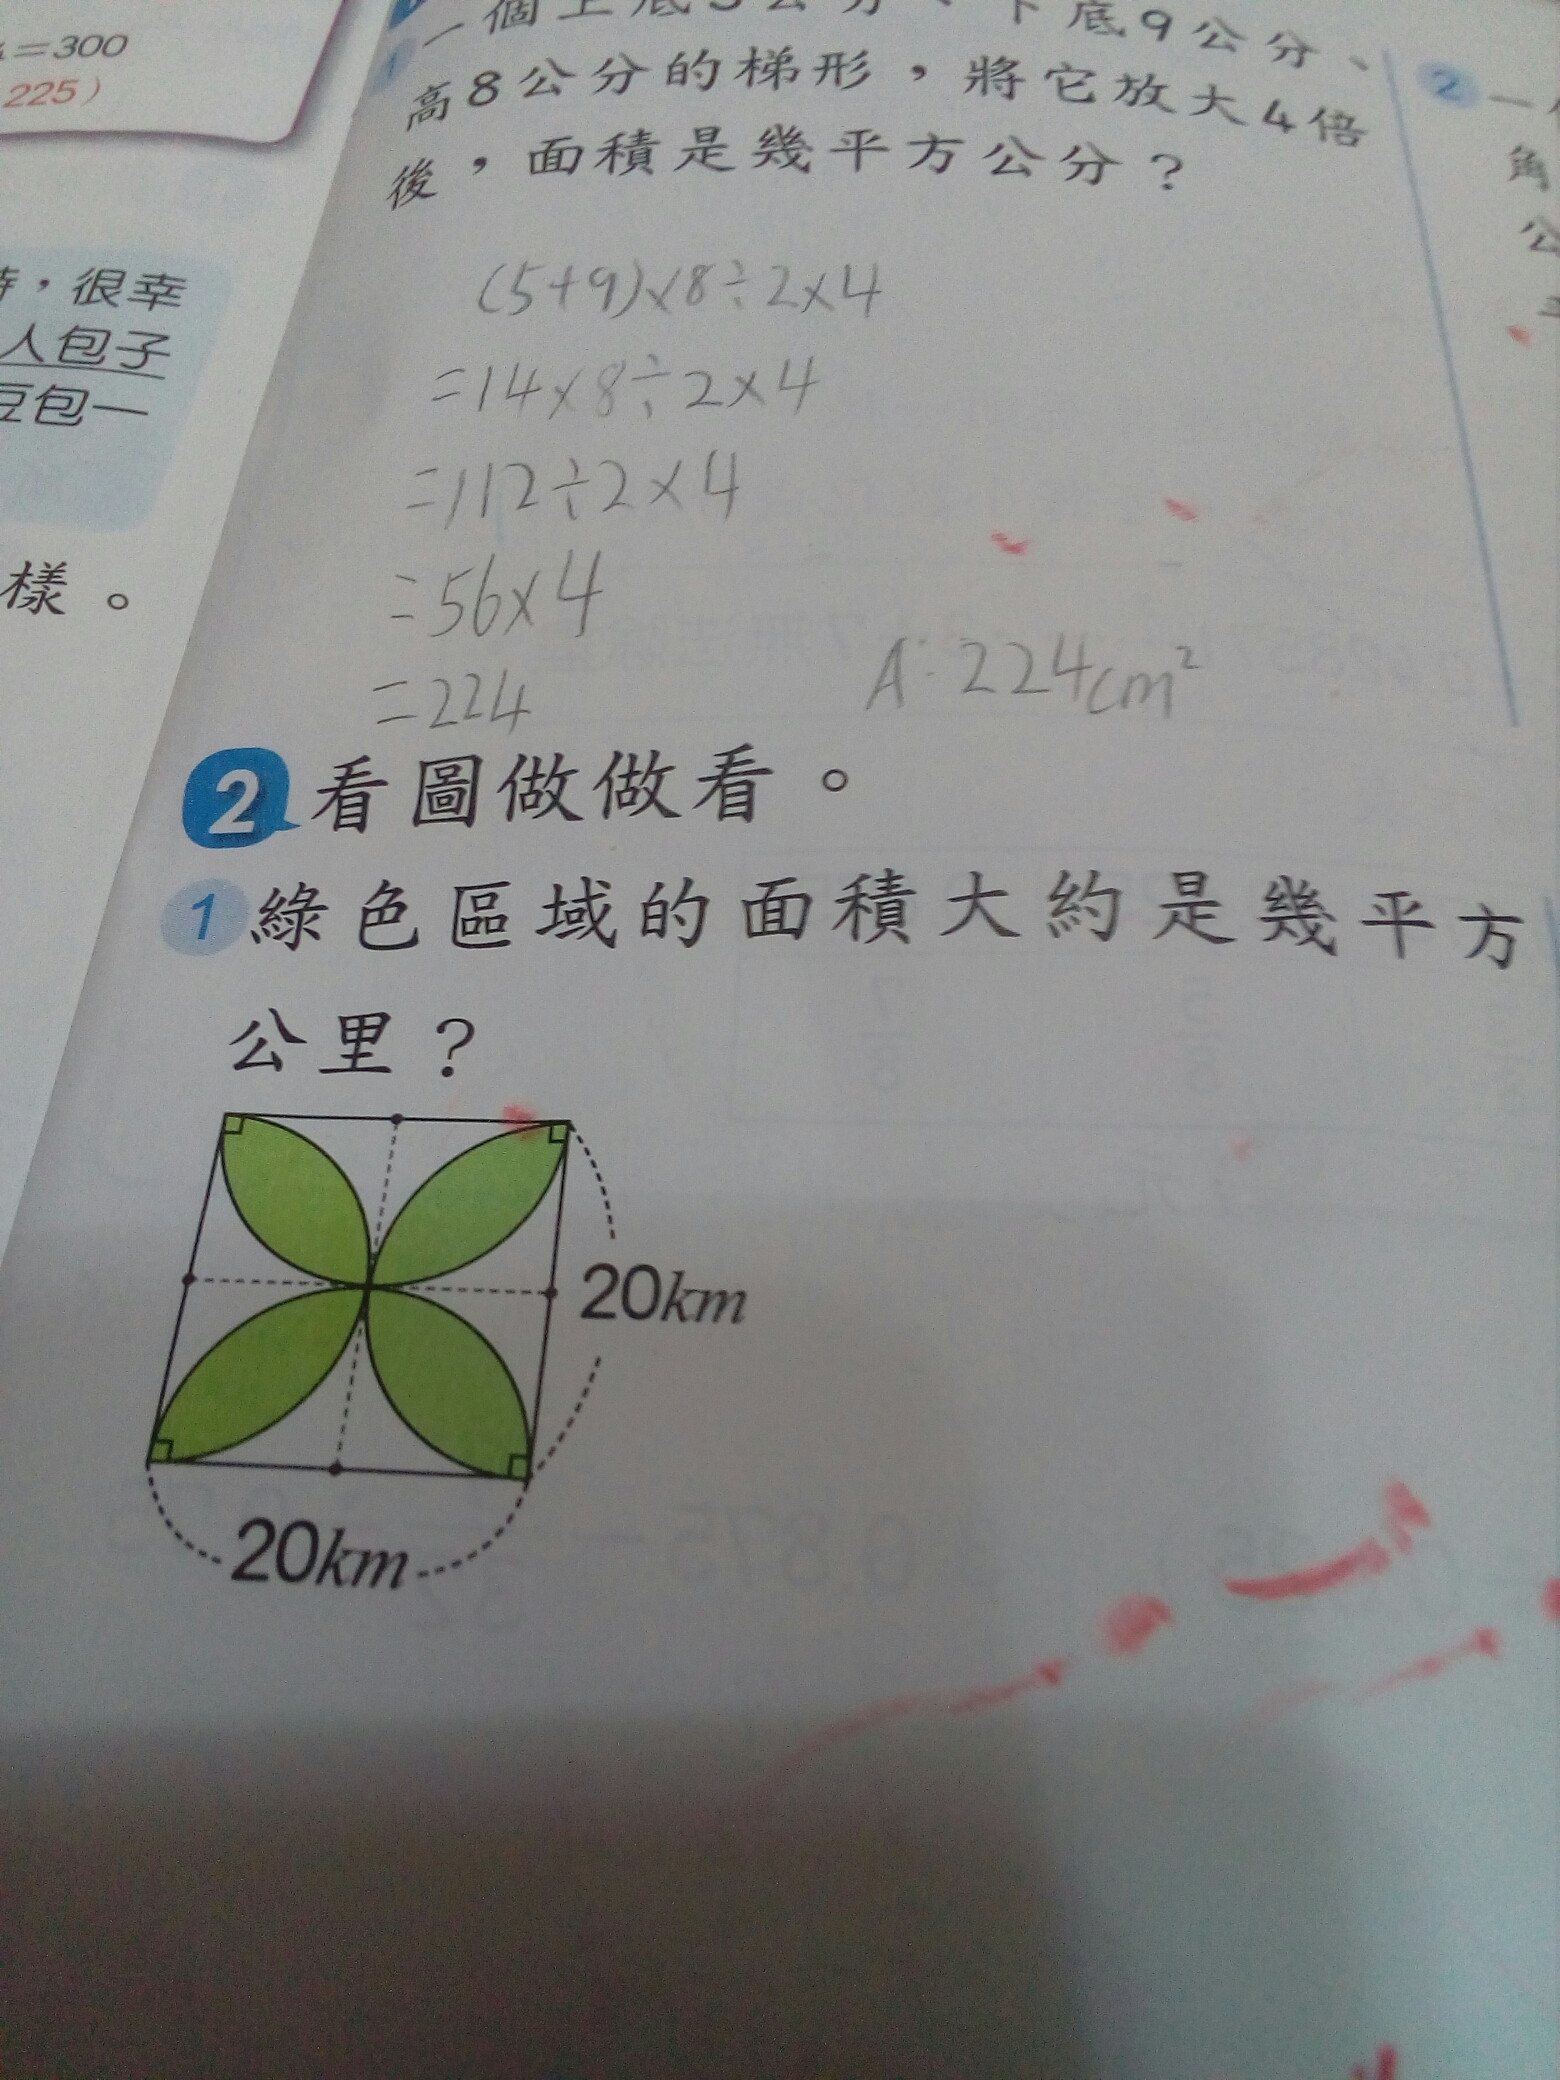 =300
225）
一個上底5公分、下底9公分、
高8公分的梯形，將它放大4倍
後，面積是幾平方公分？
2
角
公
，很幸
人包子
豆包一
樣。
(5+9)×8÷2×4
=14×8÷2×4
=112÷2×4
=56×4
=224
A:224cm²
2 看圖做做看。
1 綠色區域的面積大約是幾平方
公里？
20km
20km